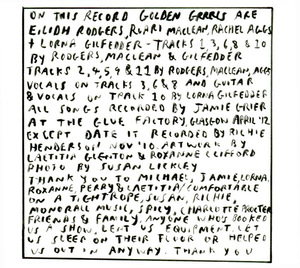 ON THIS RECORD GOLDEN GRRRLS ARE
EILIDH RODGERS, RUARI MACLEAN, RACHEL AGGS
+ LORNA GILFEDDER - TRACKS 1,3,6,8 & 10
BY RODGERS, MACLEAN & GILFEDDER
TRACKS 2,4,5,9 & 11 BY RODGERS, MACLEAN, AGGS
VOCALS ON TRACKS 3,6,8 AND GUITAR
& VOCALS ON TRACK 10 BY LORNA GILFEDDER
ALL SONGS RECORDED BY JAMIE GRIER
AT THE GLUE FACTORY, GLASGOW APRIL '12
EXCEPT DATE IT RECORDED BY RICHIE
HENDERSON NOV '10. ARTWORK BY
LAETITIA GLENTON & ROXANNE CLIFFORD
PHOTO BY SUSAN
THANK YOU TO MICHAEL, JAMIE, LORNA,
ROXANNE, PERRY & LAETITIA/COMFORTABLE
ON A TIGHTROPE, SUSAN, RICHIE,
MONORAIL MUSIC, SPILY, CHARLOTTE PROCTER
FRIENDS & FAMILY, ANYONE WHO'S BOOKED
US A SHOW, LENT US EQUIPMENT, LET
US SLEEP ON THEIR FLOOR OR HELPED
US OUT IN ANYWAY. THANK YOU